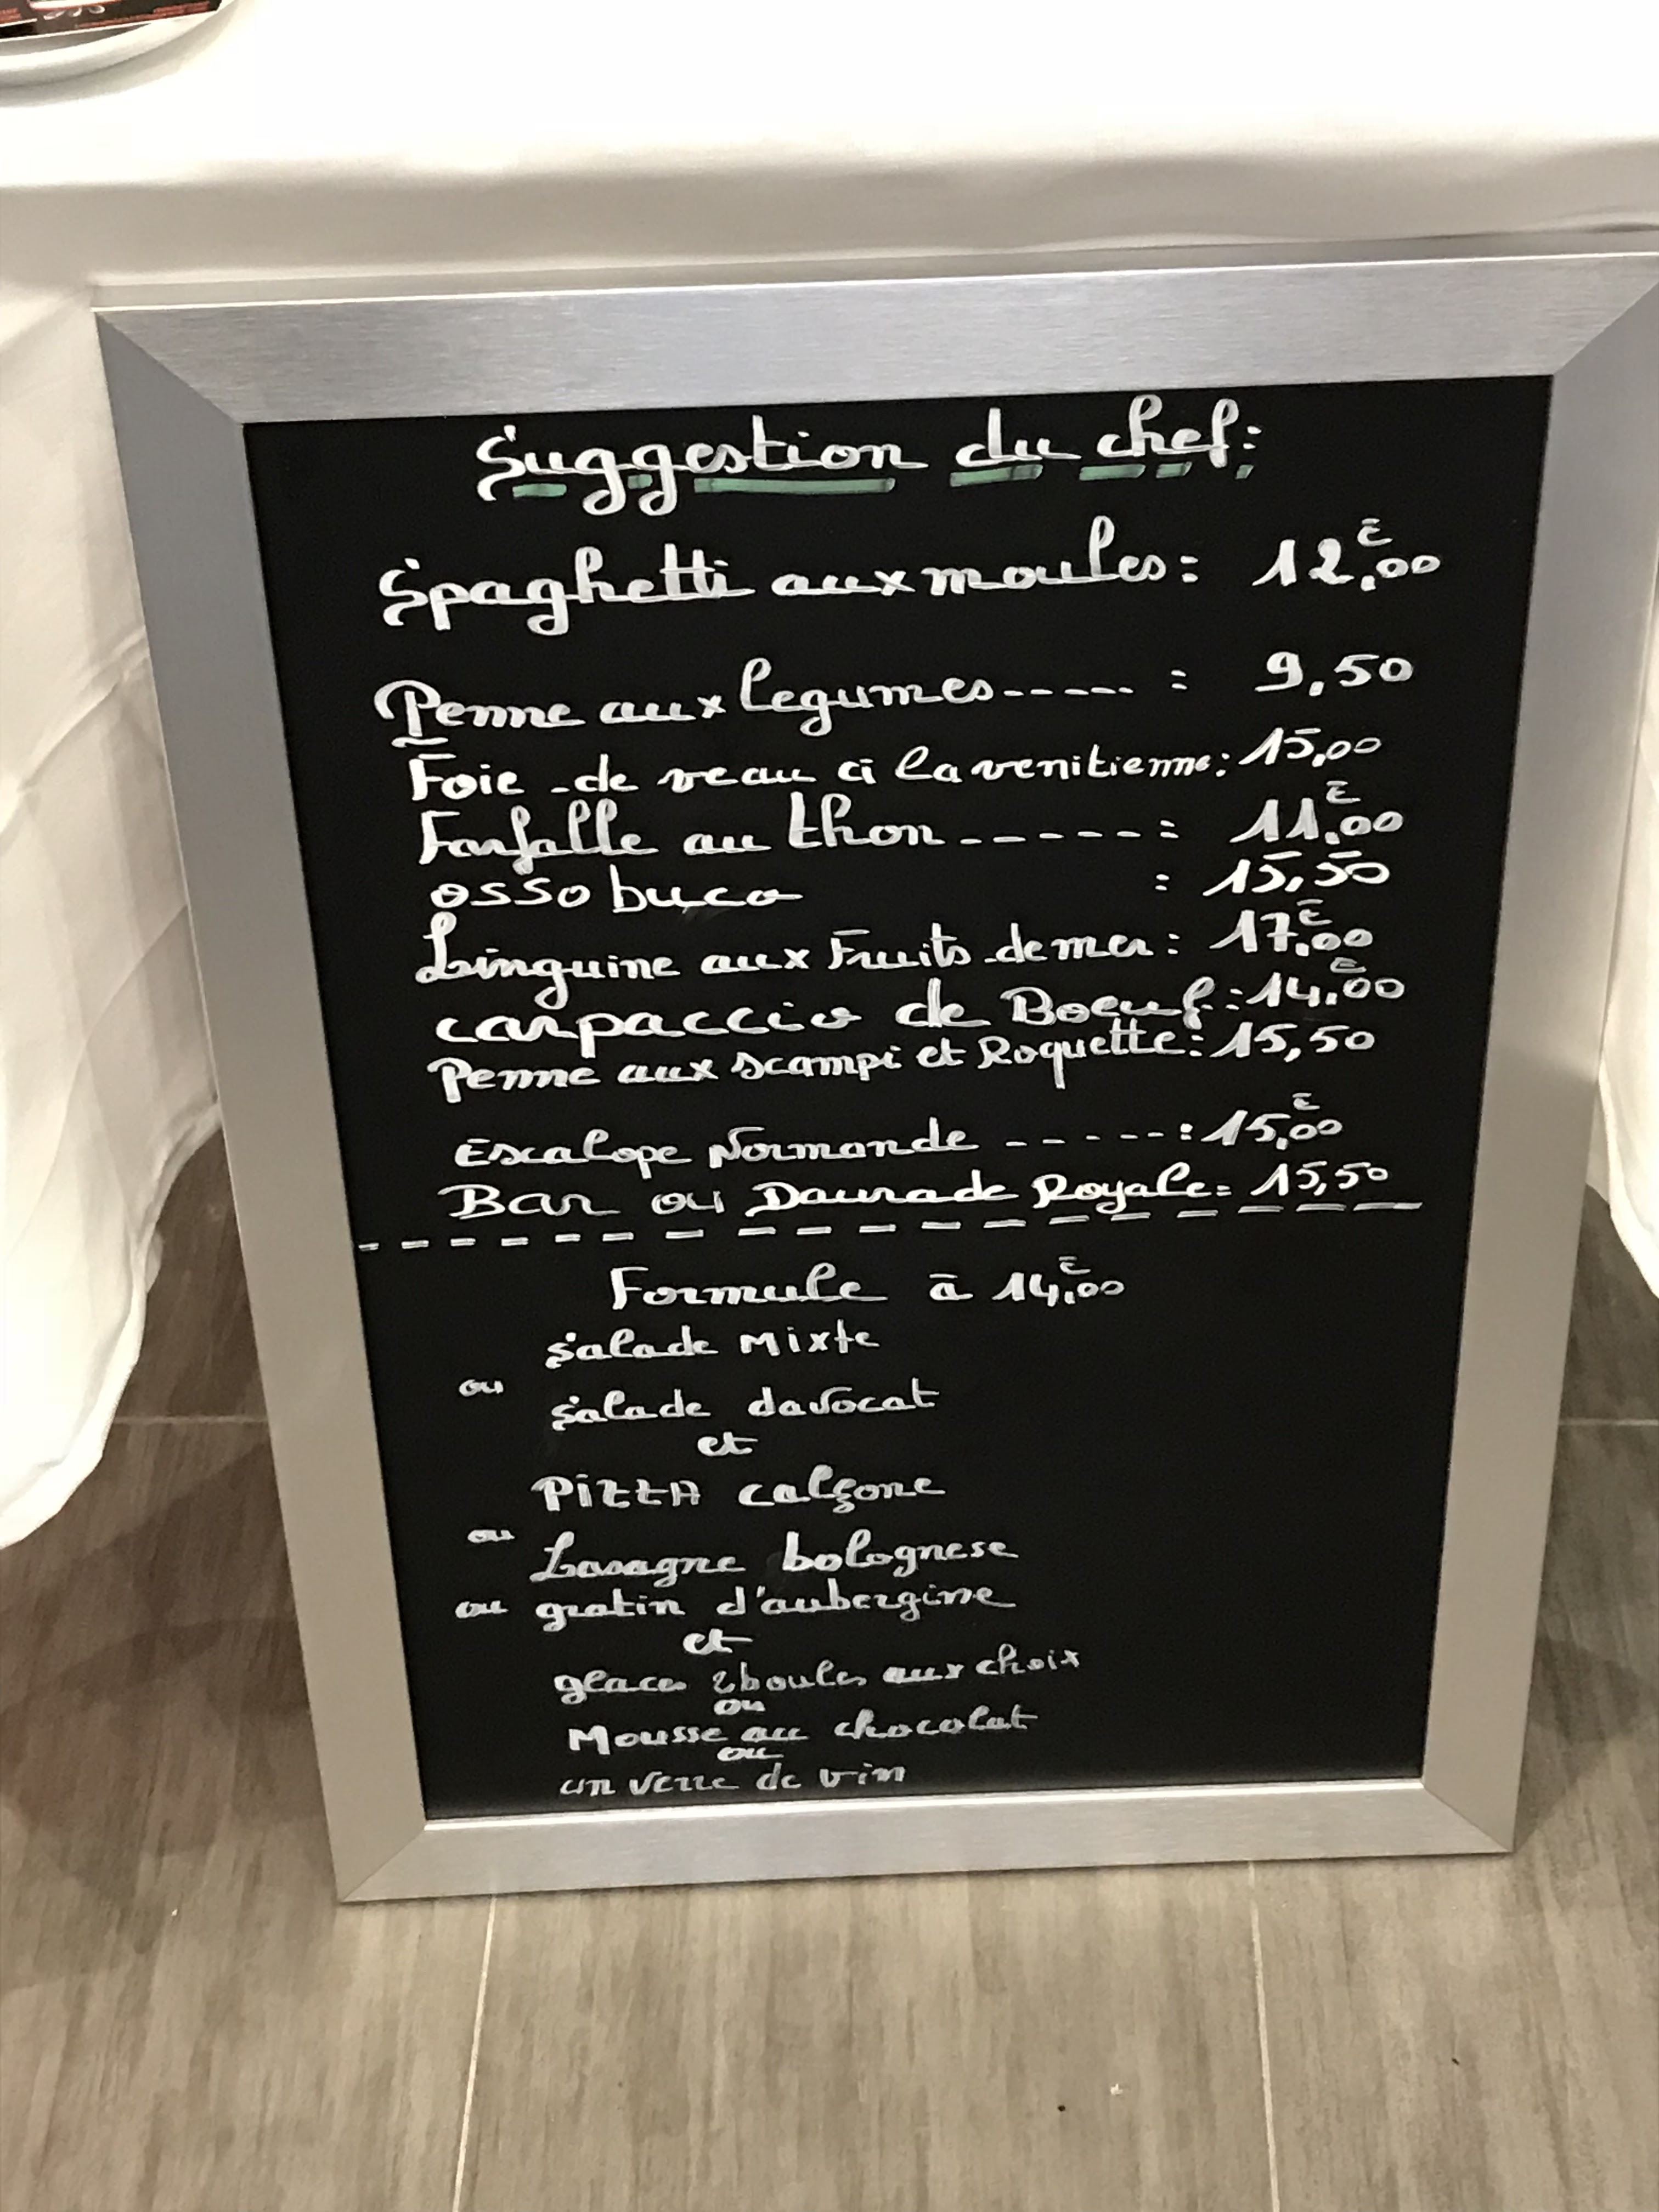 Suggestion du chef:
Spaghetti aux moules: 12,00€
Penne aux legumes-----: 9,50
Foie de veau à la venitienne: 15,00
Farfalle au thon-----: 11,00€
osso buco : 15,50
Linguine aux Fruits de mer: 17,00€
carpaccio de Boeuf: 14,00€
Penne aux scampi et Roquette: 15,50
Escalope Normande -----: 15,00€
Bar ou Daurade Royale: 15,50
Formule à 14,00€
salade Mixte
ou
salade davocat
et
PiZZA calçone
ou
Lasagne bolognese
ou gratin d'aubergine
et
glaces 2boules aux choix
ou
Mousse au chocolat
ou
un verre de vin